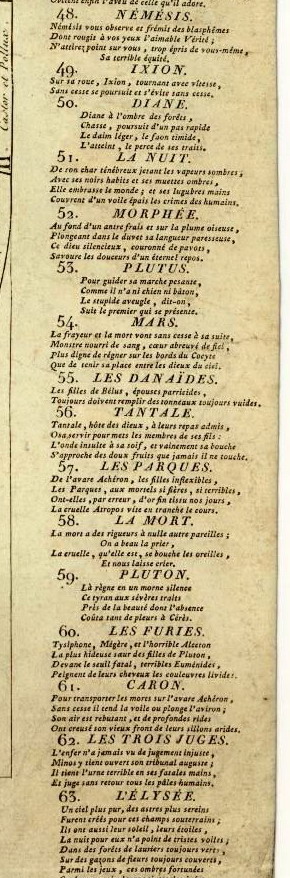 obtient enfin l'aveu de celle qu'il adore.
48. NÉMÉSIS.
Némésis vous observe et frémit des blasphêmes
Dont rougit à vos yeux l'aimable Vérité ;
N'attirez point sur vous, trop épris de vous-même,
Sa terrible équité.
49. IXION.
Sur sa roue, Ixion, tournant avec vitesse,
Sans cesse se poursuit et s'évite sans cesse.
50. DIANE.
Diane à l'ombre des forêts,
Chasse, poursuit d'un pas rapide
Le daim léger, le faon timide,
L'atteint, le perce de ses traits.
51. LA NUIT.
De son char ténébreux jetant les vapeurs sombres ;
Avec ses noirs habits et ses muettes ombres,
Elle embrasse le monde ; et ses lugubres mains
Couvrent d'un voile épais les crimes des humains.
52. MORPHÉE.
Au fond d'un antre frais et sur la plume oiseuse,
Plongeant dans le duvet sa langueur paresseuse,
Ce dieu silencieux, couronné de pavots,
Savoure les douceurs d'un éternel repos.
53. PLUTUS.
Pour guider sa marche pesante,
Comme il n'a ni chien ni bâton,
Le stupide aveugle, dit-on,
Suit le premier qui se présente.
54. MARS.
La frayeur et la mort vont sans cesse à sa suite,
Monstre nourri de sang, cœur abreuvé de fiel,
Plus digne de régner sur les bords du Cocyte
Que de tenir sa place entre les dieux du ciel.
55. LES DANAÏDES.
Les filles de Bélus, épouses parricides,
Toujours doivent remplir des tonneaux toujours vuides.
56. TANTALE.
Tantale, hôte des dieux, à leurs repas admis,
Osa servir pour mets les membres de ses fils :
L'onde insulte à sa soif, et vainement sa bouche
S'approche des doux fruits que jamais il ne touche.
57. LES PARQUES.
De l'avare Achéron, les filles inflexibles,
Les Parques, aux mortels si fières, si terribles,
Ont-elles, par erreur, d'or fin tissu nos jours,
La cruelle Atropos vite en tranche le cours.
58. LA MORT.
La mort a des rigueurs à nulle autre pareilles ;
On a beau la prier,
La cruelle, qu'elle est, se bouche les oreilles,
Et nous laisse crier.
59. PLUTON.
Là règne en un morne silence
Ce tyran aux sévères traits
Près de la beauté dont l'absence
Coûta tant de pleurs à Cérès.
60. LES FURIES.
Tysiphone, Mégère, et l'horrible Alecton
La plus hideuse sœur des filles de Pluton,
Devant le seuil fatal, terribles Euménides,
Peignent de leurs cheveux les couleuvres livides.
61. CARON.
Pour transporter les morts sur l'avare Achéron,
Sans cesse il tend la voile ou plonge l'aviron ;
Son air est rebutant, et de profondes rides
Ont creusé son vieux front de leurs sillons arides.
62. LES TROIS JUGES.
L'enfer n'a jamais vu de jugement injuste,
Minos y tient ouvert son tribunal auguste ;
Il tient l'urne terrible en ses fatales mains,
Et juge sans retour tous les pâles humains.
63. L'ÉLYSÉE.
Un ciel plus pur, des astres plus sereins
Furent créés pour ces champs souterrains ;
Ils ont aussi leur soleil, leurs étoiles,
La nuit pour eux n'a point de tristes voiles ;
Dans des forêts de lauriers toujours verts,
Sur des gazons de fleurs toujours couverts,
Parmi les jeux, ces ombres fortunées
III. Castor et Pollux.